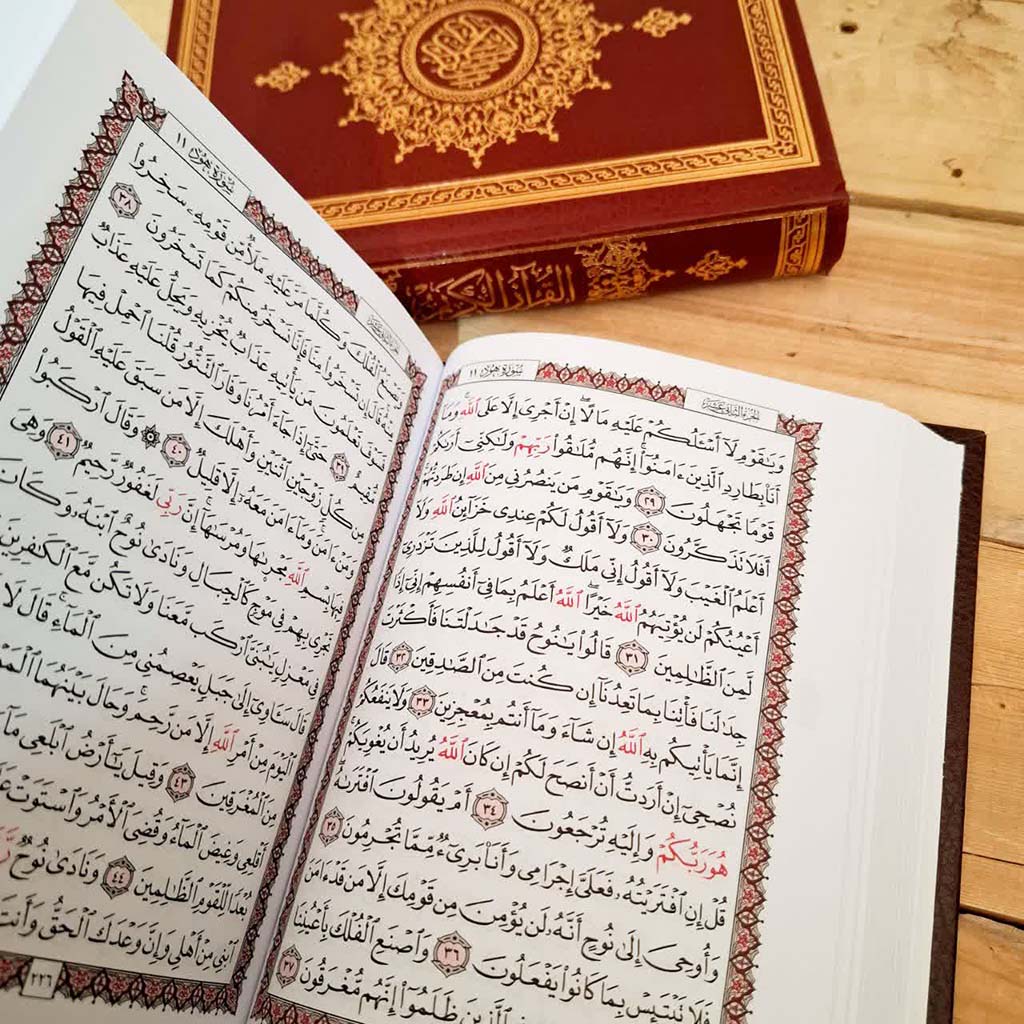 القرآن الكريم
القرآن الكريم
سورة هود ١١
الجزء الثاني عشر
وَيَٰقَوْمِ لَآ أَسْـَٔلُكُمْ عَلَيْهِ مَالًا ۖ إِنْ أَجْرِىَ إِلَّا عَلَى ٱللَّهِ ۚ وَمَآ
أَنَا۠ بِطَارِدِ ٱلَّذِينَ ءَامَنُوٓا۟ ۚ إِنَّهُم مُّلَٰقُوا۟ رَبِّهِمْ وَلَٰكِنِّىٓ أَرَىٰكُمْ
قَوْمًا تَجْهَلُونَ ٢٩ وَيَٰقَوْمِ مَن يَنصُرُنِى مِنَ ٱللَّهِ إِن طَرَدتُّهُمْ ۚ
أَفَلَا تَذَكَّرُونَ ٣٠ وَلَآ أَقُولُ لَكُمْ عِندِى خَزَآئِنُ ٱللَّهِ وَلَآ
أَعْلَمُ ٱلْغَيْبَ وَلَآ أَقُولُ إِنِّى مَلَكٌ وَلَآ أَقُولُ لِلَّذِينَ تَزْدَرِىٓ
أَعْيُنُكُمْ لَن يُؤْتِيَهُمُ ٱللَّهُ خَيْرًا ۖ ٱللَّهُ أَعْلَمُ بِمَا فِىٓ أَنفُسِهِمْ ۖ إِنِّىٓ إِذًا
لَّمِنَ ٱلظَّٰلِمِينَ ٣١ قَالُوا۟ يَٰنُوحُ قَدْ جَٰدَلْتَنَا فَأَكْثَرْتَ
جِدَٰلَنَا فَأْتِنَا بِمَا تَعِدُنَآ إِن كُنتَ مِنَ ٱلصَّٰدِقِينَ ٣٢ قَالَ
إِنَّمَا يَأْتِيكُم بِهِ ٱللَّهُ إِن شَآءَ وَمَآ أَنتُم بِمُعْجِزِينَ ٣٣ وَلَا يَنفَعُكُمْ
نُصْحِىٓ إِنْ أَرَدتُّ أَنْ أَنصَحَ لَكُمْ إِن كَانَ ٱللَّهُ يُرِيدُ أَن يُغْوِيَكُمْ ۚ
هُوَ رَبُّكُمْ وَإِلَيْهِ تُرْجَعُونَ ٣٤ أَمْ يَقُولُونَ ٱفْتَرَىٰهُ ۖ
قُلْ إِنِ ٱفْتَرَيْتُهُۥ فَعَلَىَّ إِجْرَامِى وَأَنَا۠ بَرِىٓءٌ مِّمَّا تُجْرِمُونَ ٣٥
وَأُوحِىَ إِلَىٰ نُوحٍ أَنَّهُۥ لَن يُؤْمِنَ مِن قَوْمِكَ إِلَّا مَن قَدْ ءَامَنَ
فَلَا تَبْتَئِسْ بِمَا كَانُوا۟ يَفْعَلُونَ ٣٦ وَٱصْنَعِ ٱلْفُلْكَ بِأَعْيُنِنَا
فِى ٱلَّذِينَ ظَلَمُوٓا۟ ۚ إِنَّهُم مُّغْرَقُونَ ٣٧
سورة هود ١١
الجزء الثاني عشر
وَيَصْنَعُ ٱلْفُلْكَ وَكُلَّمَا مَرَّ عَلَيْهِ مَلَأٌ مِّن قَوْمِهِۦ سَخِرُوا۟
مِنْهُ ۚ قَالَ إِن تَسْخَرُوا۟ مِنَّا فَإِنَّا نَسْخَرُ مِنكُمْ كَمَا تَسْخَرُونَ ٣٨
فَسَوْفَ تَعْلَمُونَ مَن يَأْتِيهِ عَذَابٌ يُخْزِيهِ وَيَحِلُّ عَلَيْهِ عَذَابٌ
مُّقِيمٌ ٣٩ حَتَّىٰٓ إِذَا جَآءَ أَمْرُنَا وَفَارَ ٱلتَّنُّورُ قُلْنَا ٱحْمِلْ فِيهَا
مِن كُلٍّ زَوْجَيْنِ ٱثْنَيْنِ وَأَهْلَكَ إِلَّا مَن سَبَقَ عَلَيْهِ ٱلْقَوْلُ
وَمَنْ ءَامَنَ ۚ وَمَآ ءَامَنَ مَعَهُۥٓ إِلَّا قَلِيلٌ ٤٠ ۞ وَقَالَ ٱرْكَبُوا۟
فِيهَا بِسْمِ ٱللَّهِ مَجْر۪ىٰهَا وَمُرْسَىٰهَآ ۚ إِنَّ رَبِّى لَغَفُورٌ رَّحِيمٌ ٤١ وَهِىَ
تَجْرِى بِهِمْ فِى مَوْجٍ كَٱلْجِبَالِ وَنَادَىٰ نُوحٌ ٱبْنَهُۥ وَكَانَ
فِى مَعْزِلٍ يَٰبُنَىَّ ٱرْكَب مَّعَنَا وَلَا تَكُن مَّعَ ٱلْكَٰفِرِينَ
قَالَ سَـَٔاوِىٓ إِلَىٰ جَبَلٍ يَعْصِمُنِى مِنَ ٱلْمَآءِ ۚ قَالَ لَا
ٱلْيَوْمَ مِنْ أَمْرِ ٱللَّهِ إِلَّا مَن رَّحِمَ ۚ وَحَالَ بَيْنَهُمَا
مِنَ ٱلْمُغْرَقِينَ ٤٣ وَقِيلَ يَٰٓأَرْضُ ٱبْلَعِى
أَقْلِعِى وَغِيضَ ٱلْمَآءُ وَقُضِىَ ٱلْأَمْرُ وَٱسْتَوَتْ
بُعْدًا لِّلْقَوْمِ ٱلظَّٰلِمِينَ ٤٤ وَنَادَىٰ نُوحٌ
ٱبْنِى مِنْ أَهْلِى وَإِنَّ وَعْدَكَ ٱلْحَقُّ وَأَنتَ
٢٢٦